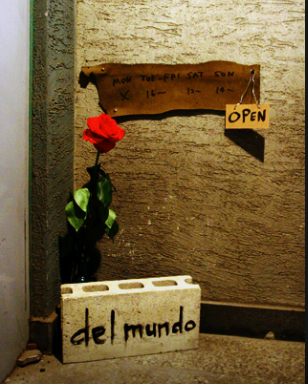 MON TUE-FRI SAT SUN
X 16~ 12~ 10~
OPEN
del mundo